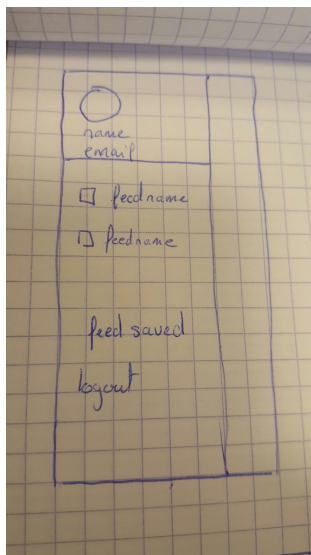 name
email
feedname
feedname
feed saved
logout